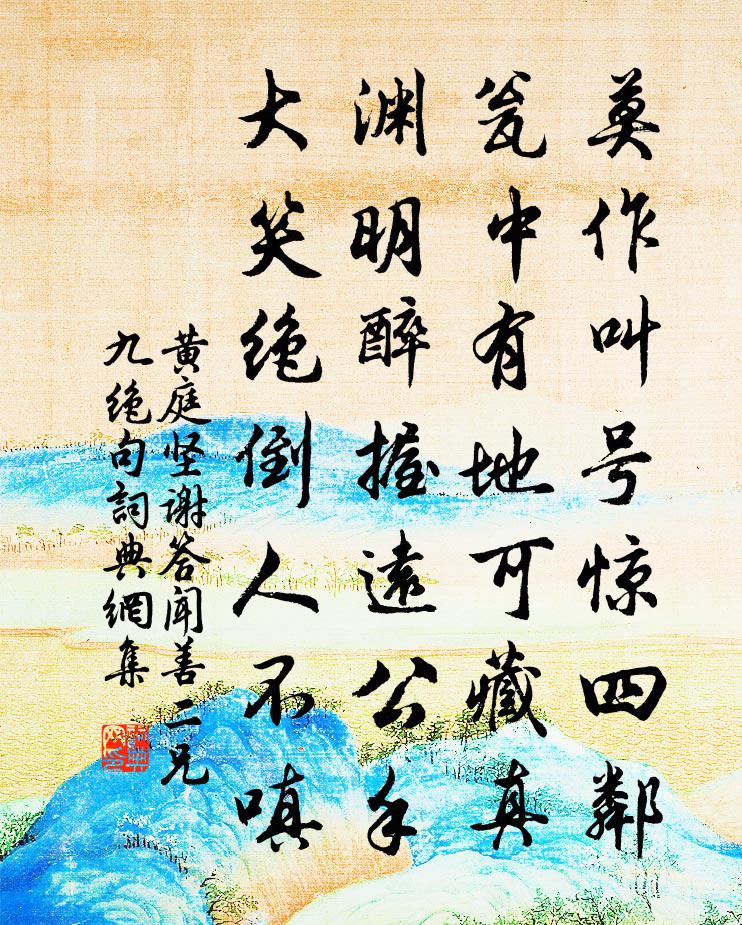 莫作叫号惊四鄰
瓮中有地可藏真
渊明醉握遠公手
大笑絶倒人不嗔
黄庭坚谢答闻善二兄
九绝句詞典網集